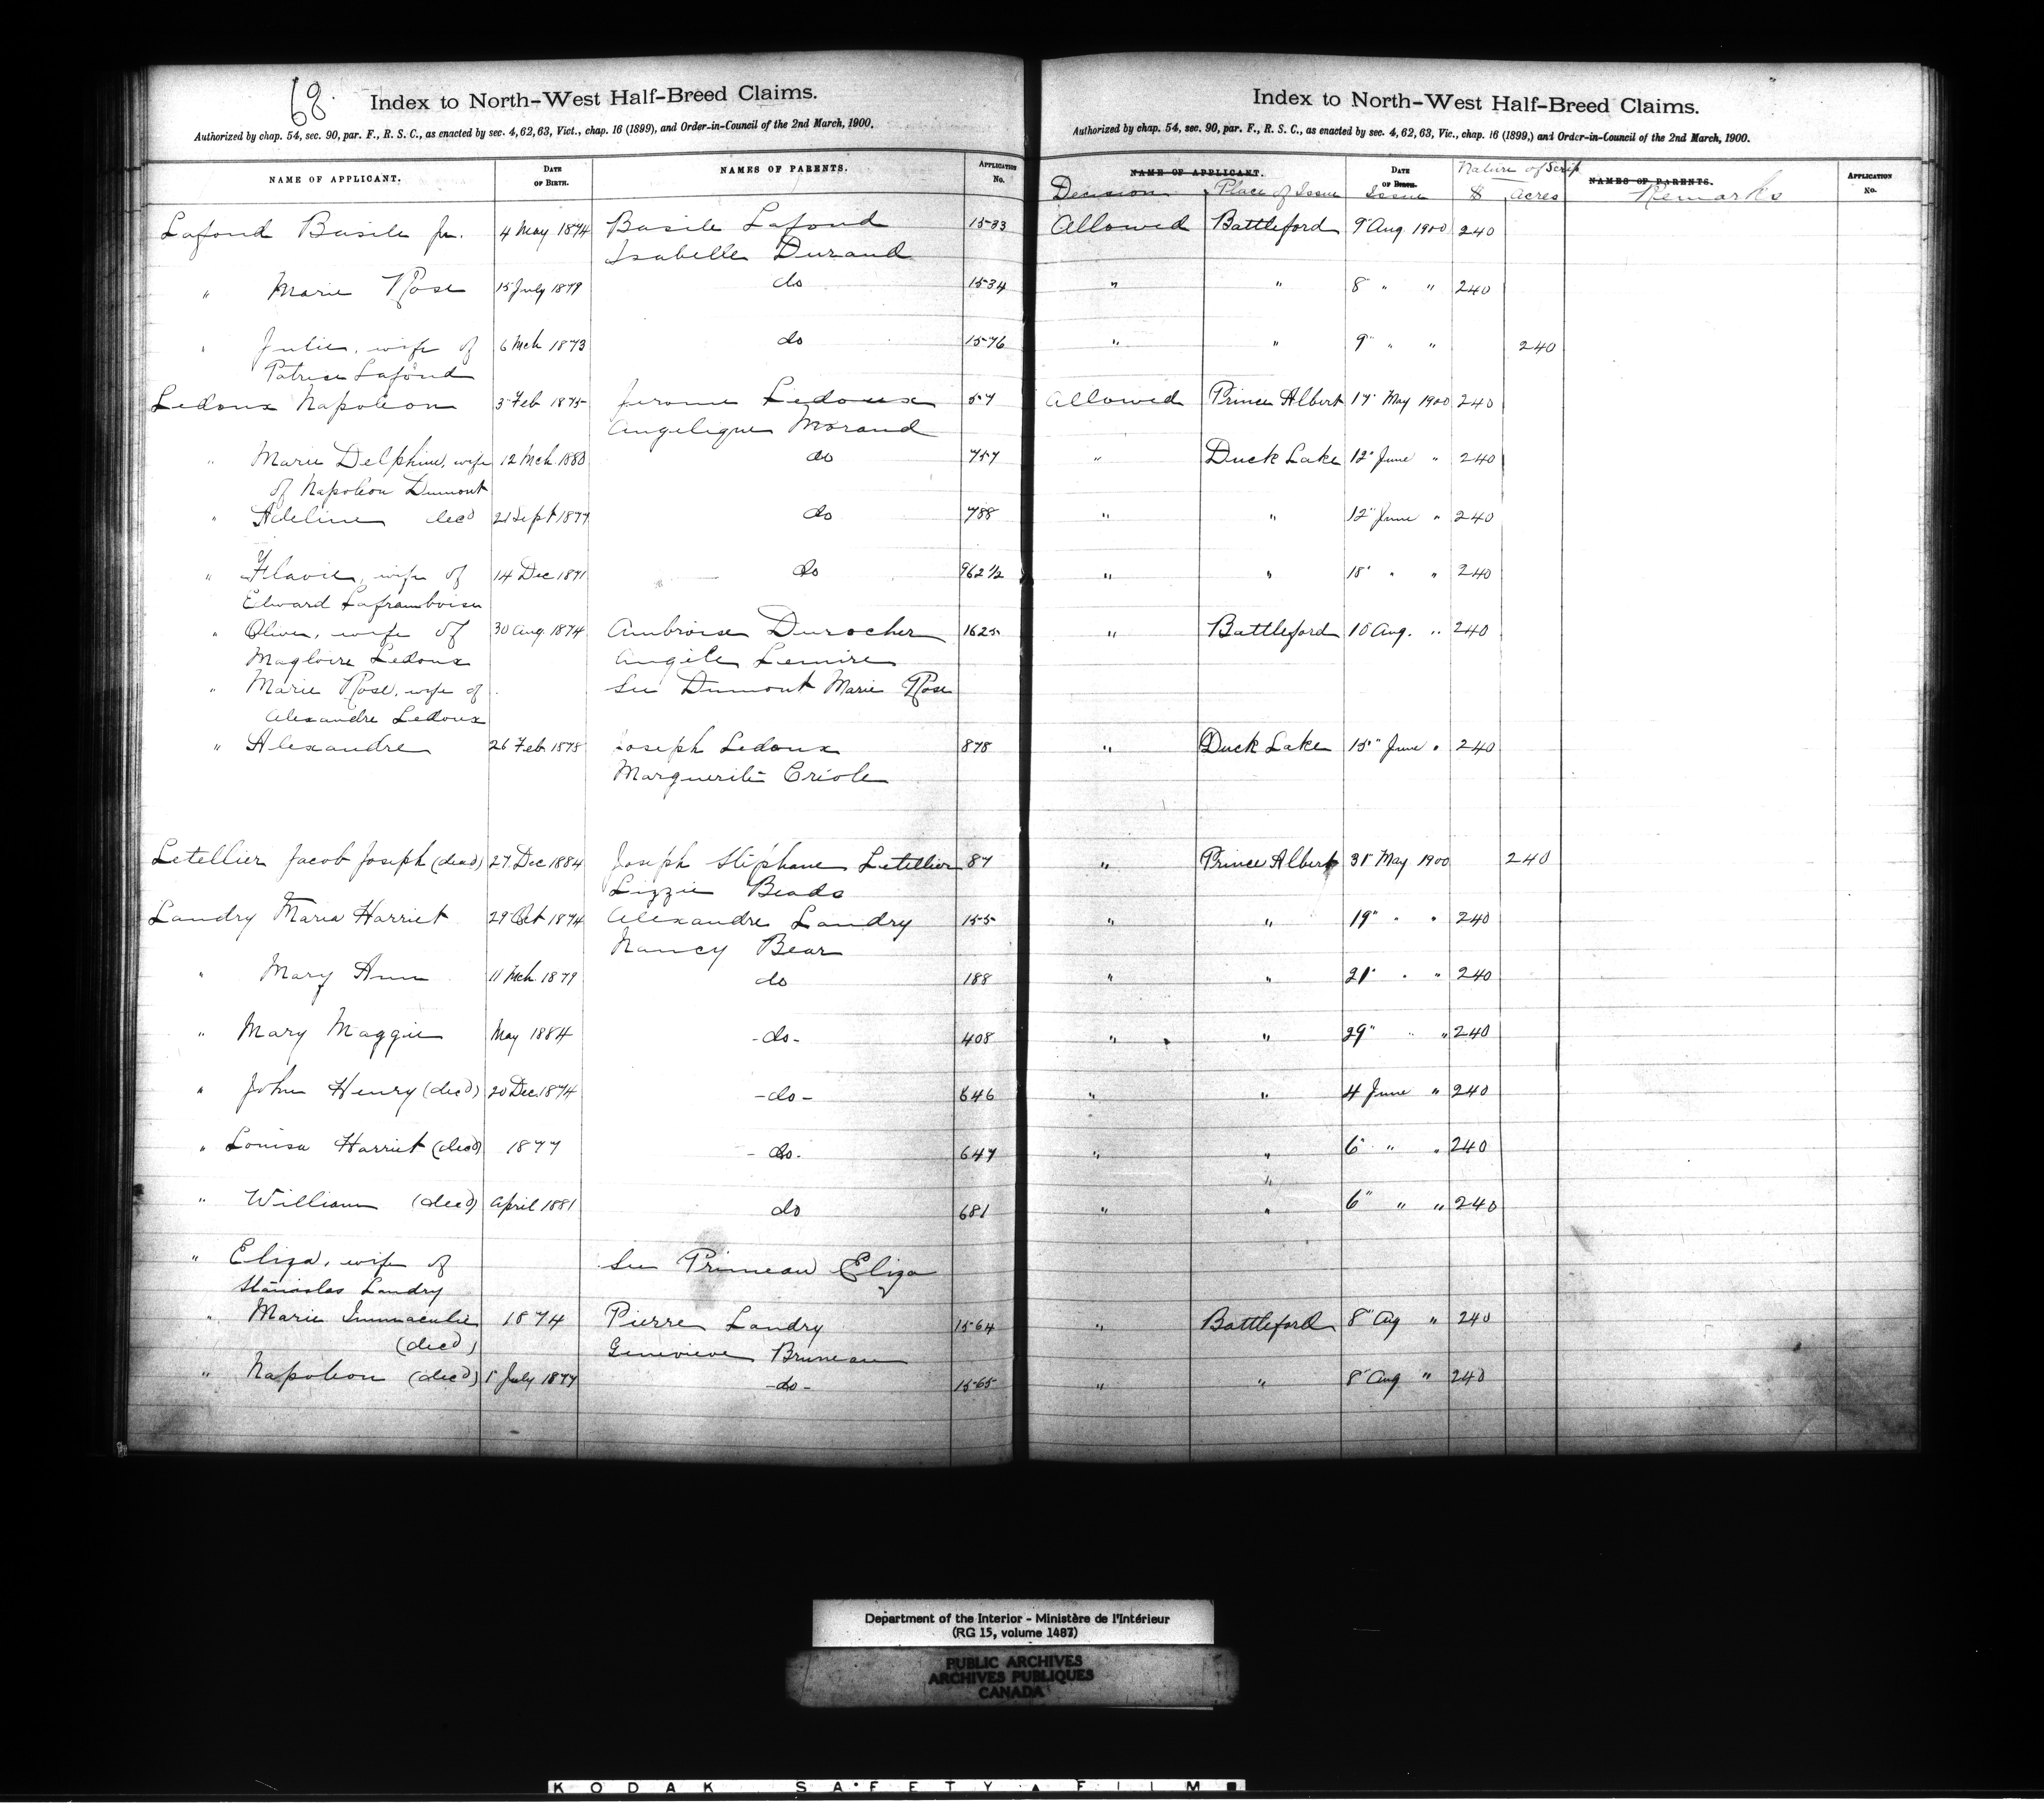 68.
Index to North-West Half-Breed Claims.
Authorized by chap. 54, sec. 90, par. F., R. S. C., as enacted by sec. 4, 62, 63, Vict., chap. 16 (1899), and Order-in-Council of the 2nd March, 1900.
NAME OF APPLICANT. DATE OF BIRTH. NAMES OF PARENTS. APPLICATION No.
Lafond Basile Jr. 4 May 1874 Basile Lafond 1533
Isabelle Durand
" Marie Rose 15 July 1879 do 1534
" Julie, wife of 6 Mch 1873 do 1576
Patrice Lafond
Ledoux Napoleon 3 Feb 1875 Jerome Ledoux 57
Angelique Morand
" Marie Delphine, wife 12 Mch 1880 do 757
of Napoleon Dumont
" Adeline decd 21 Sept 1877 do 788
" Flavie, wife of 14 Dec 1871 do 962 1/2
Edward Laframboise
" Olive, wife of 30 Aug. 1874 Ambroise Durocher 1625
Magloire Ledoux Angèle Lemire
" Marie Rose, wife of See Dumont Marie Rose
Alexandre Ledoux
" Alexandre 26 Feb 1878 Joseph Ledoux 878
Marguerite Créole
Letellier Jacob Joseph (dead) 27 Dec 1884 Joseph Stéphane Letellier 87
Lizzie Beads
Landry Maria Harriet 29 Oct 1874 Alexandre Landry 155
Nancy Bear
" Mary Ann 11 Mch. 1879 do 188
" Mary Maggie May 1884 -do- 408
" John Henry (decd) 20 Dec. 1874 -do- 646
" Louisa Harriet (decd) 1877 -do- 647
" William (decd) April 1881 do 681
" Eliza, wife of See Primeau Eliza
Stanislas Landry
" Marie Immaculée 1874 Pierre Landry 1564
(decd) Genevieve Bruneau
" Napoleon (decd) 1 July 1877 -do- 1565
Index to North-West Half-Breed Claims.
Authorized by chap. 54, sec. 90, par. F., R. S. C., as enacted by sec. 4, 62, 63, Vic., chap. 16 (1899,) and Order-in-Council of the 2nd March, 1900.
NAME OF APPLICANT. DATE OF BIRTH. Nature of Scrip NAMES OF PARENTS. APPLICATION No.
Decision Place of Issue Issue $ Acres Remarks
Allowed Battleford 9" Aug. 1900 240
" " 8 " " 240
" " 9" " " 240
Allowed Prince Albert 17" May 1900 240
" Duck Lake 12" June " 240
" " 12" June " 240
" " 18" " " 240
" Battleford 10 Aug. " 240
" Duck Lake 15" June " 240
" Prince Albert 31" May 1900 240
" " 19" " " 240
" " 21" " " 240
" " 29" " " 240
" " 4 June " 240
" " 6" " " 240
" " 6" " " 240
" Battleford 8" Aug " 240
" " 8" Aug " 240
Department of the Interior - Ministère de l'Intérieur
(RG 15, volume 1487)
PUBLIC ARCHIVES
ARCHIVES PUBLIQUES
CANADA
KODAK SAFETY ▲ FILM ■